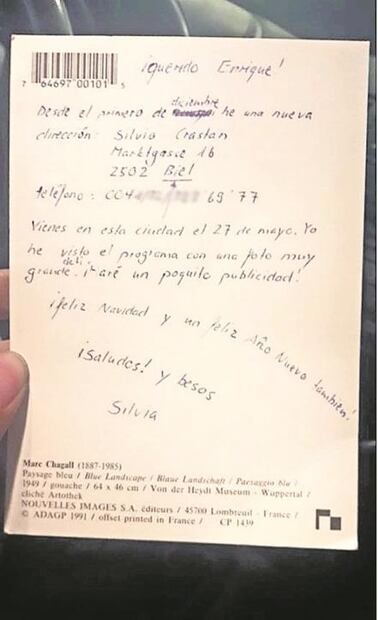 7 64697 00101 5
¡querido Enrique!
Desde el primero de diciembre he una nueva
dirección: Silvia Crastan
Marktgasse 16
2502 Biel
teléfono: 004 69'77
Vienes en esta ciudad el 27 de mayo. Yo
he visto el programa con una foto muy
grande de ti. ¡haré un poquito publicidad!
¡feliz Navidad y un feliz Año Nuevo también!
¡Saludos! y besos
Silvia
Marc Chagall (1887-1985)
Paysage bleu / Blue Landscape / Blaue Landschaft / Paesaggio blu /
1949 / gouache / 64 x 46 cm / Von der Heydt Museum - Wuppertal /
cliché Artothek
NOUVELLES IMAGES S.A. éditeurs / 45700 Lombreuil - France /
© ADAGP 1991 / offset printed in France / CP 1439